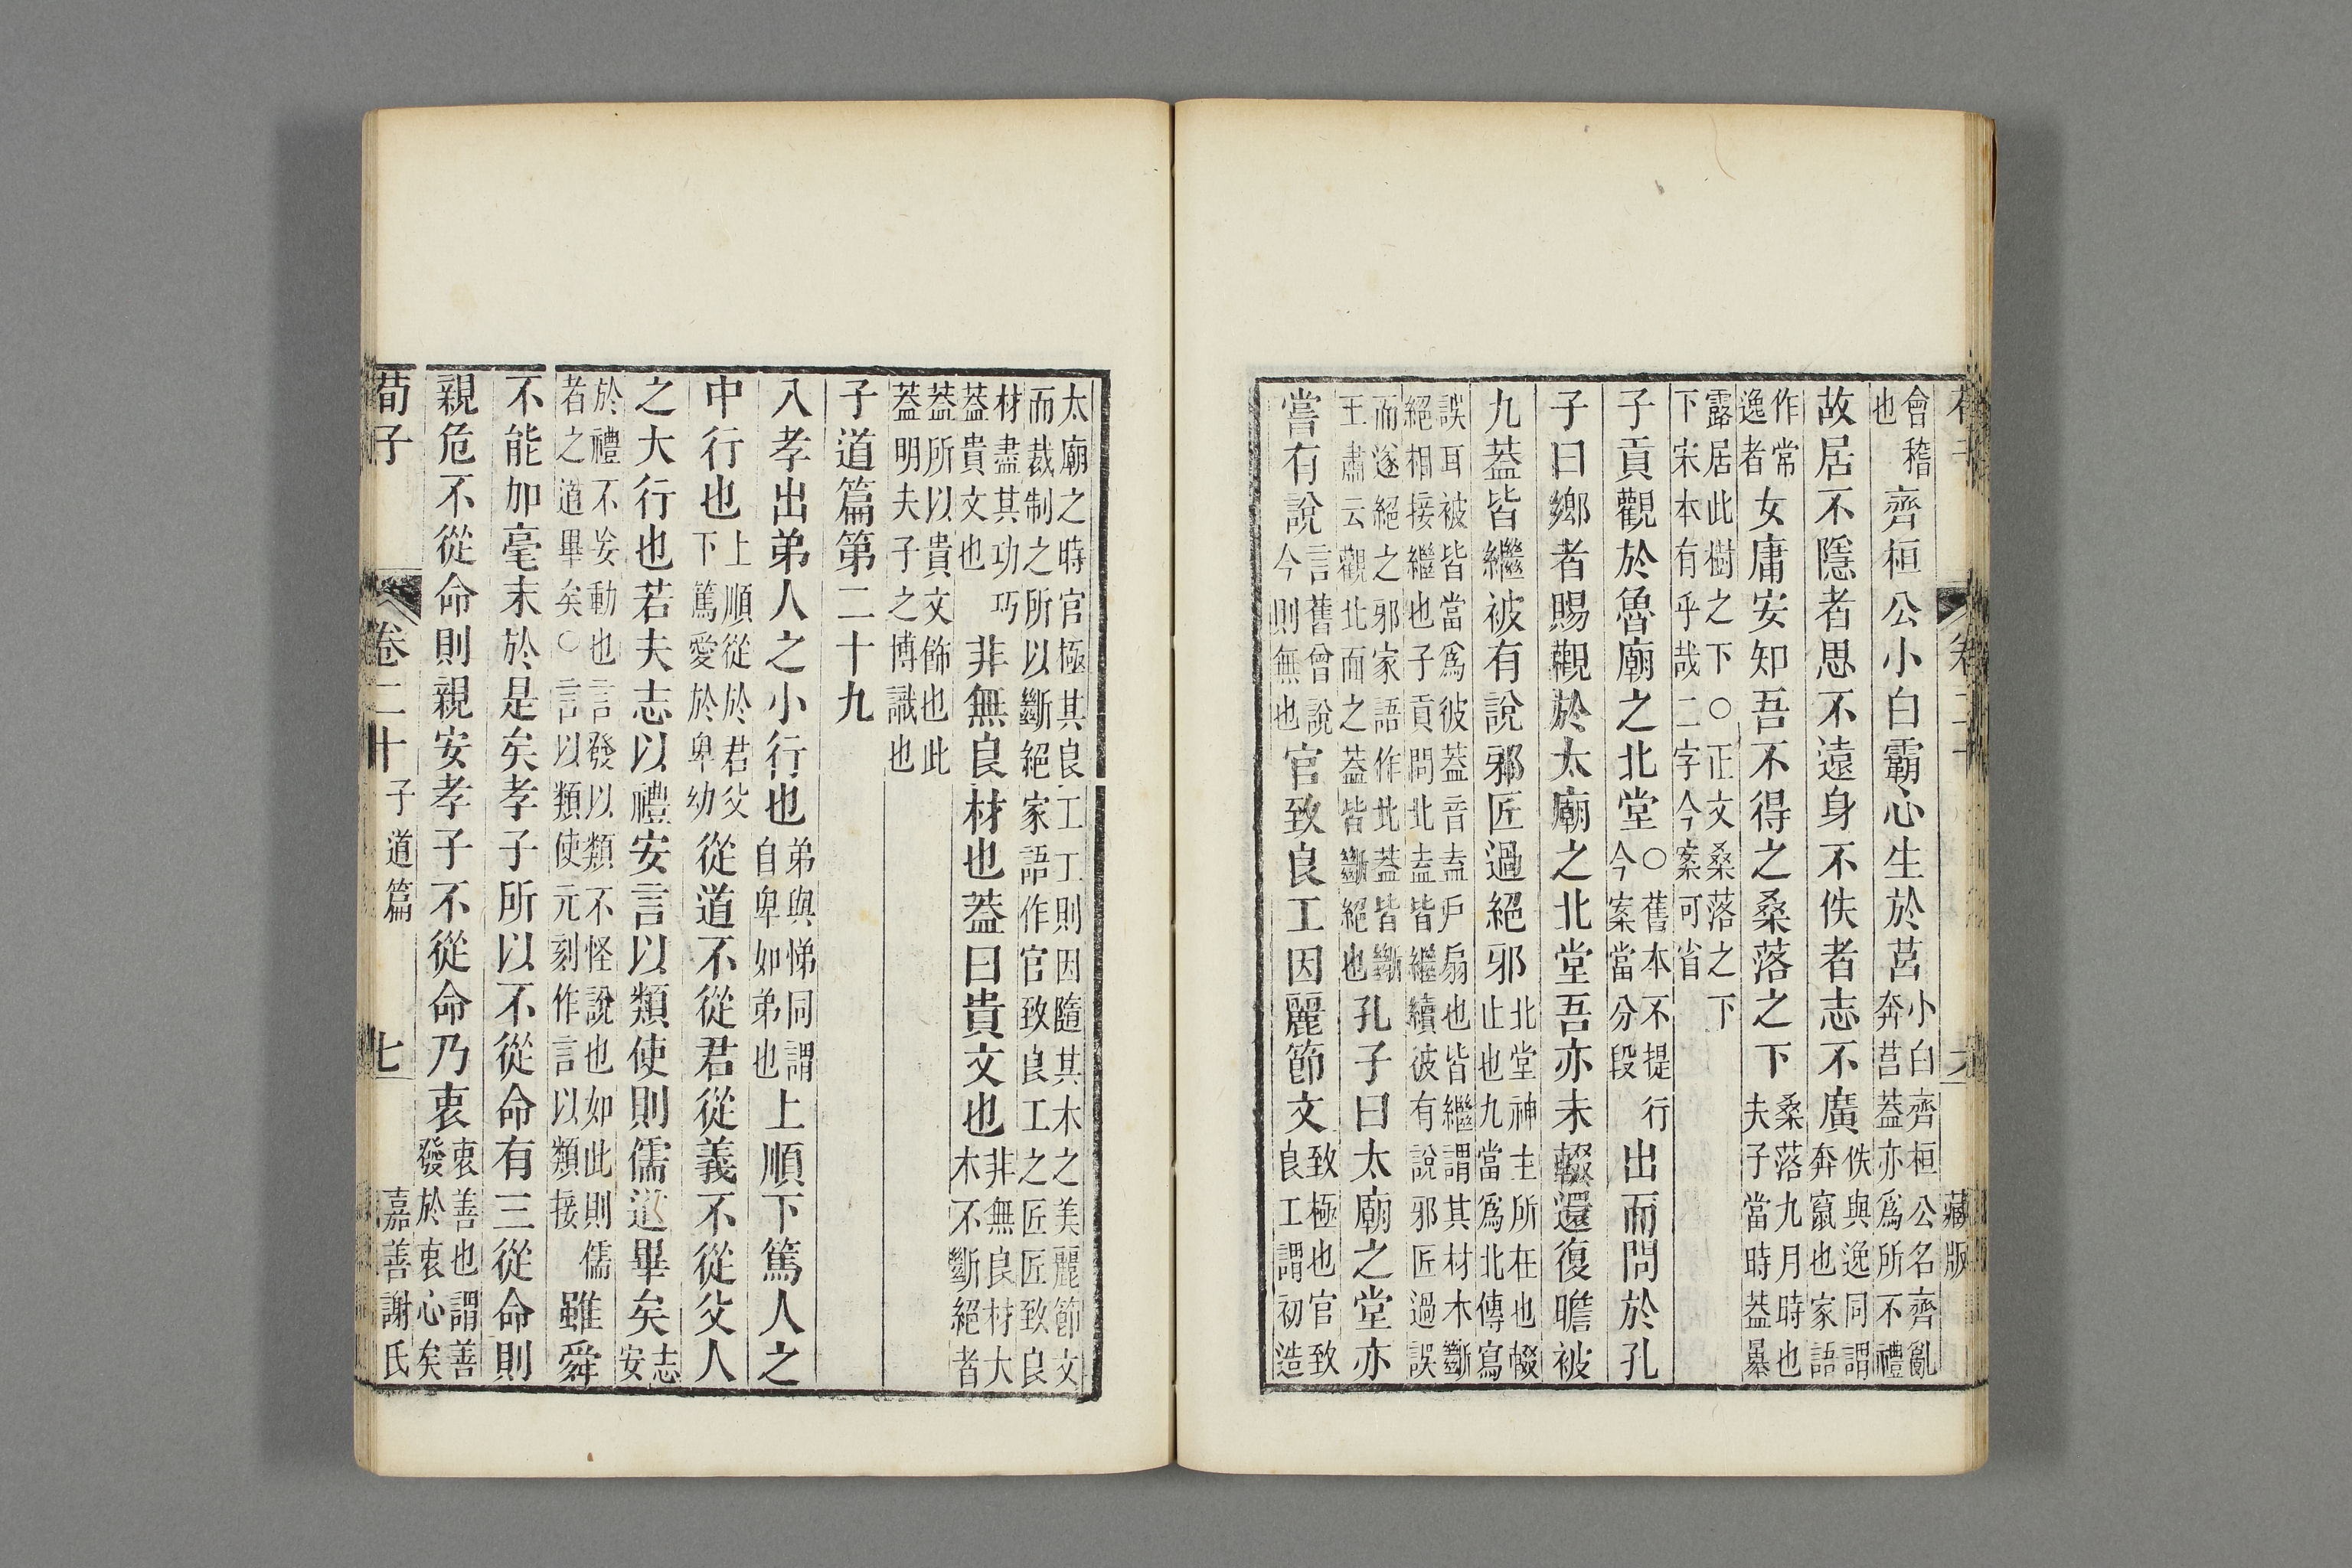 藏版
會稽也齊桓公小白霸心生於莒小白齊桓公名齊亂奔莒葢亦爲所不禮
故居不隱者思不遠身不佚者志不廣佚與逸同謂奔竄也家語
作常逸者女庸安知吾不得之桑落之下桑落九月時也夫子當時葢暴
露居此樹之下○正文桑落之下下宋本有乎哉二字今案可省
子貢觀於魯廟之北堂○舊本不提行今案當分段出而問於孔
子曰鄉者賜觀於太廟之北堂吾亦未輟還復瞻被
九葢皆繼被有說邪匠過絕邪北堂神主所在也輟止也九當爲北傳寫
誤耳被皆當爲彼葢音盍戶扇也皆繼謂其材木斷絕相接繼也子貢問北盍皆繼續彼有說邪匠過誤
而遂絕之邪家語作北葢皆斷王肅云觀北面之葢皆斷絕也孔子曰太廟之堂亦
嘗有說言舊曾說今則無也官致良工因麗節文致極也官致良工謂初造
太廟之時官極其良工工則因隨其木之美麗節文而裁制之所以斷絕家語作官致良工之匠匠致良
材盡其功巧葢貴文也非無良材也葢曰貴文也非無良材大木不斷絕者
葢所以貴文飾也此葢明夫子之博識也
子道篇第二十九
入孝出弟人之小行也弟與悌同謂自卑如弟也上順下篤人之
中行也上順從於君父下篤愛於卑幼從道不從君從義不從父人
之大行也若夫志以禮安言以類使則儒道畢矣志安
於禮不妄動也言發以類不怪說也如此則儒者之道畢矣○言以類使元刻作言以類接雖舜
不能加毫末於是矣孝子所以不從命有三從命則
親危不從命則親安孝子不從命乃衷衷善也謂善發於衷心矣
荀子 卷二十 子道篇 七 嘉善謝氏